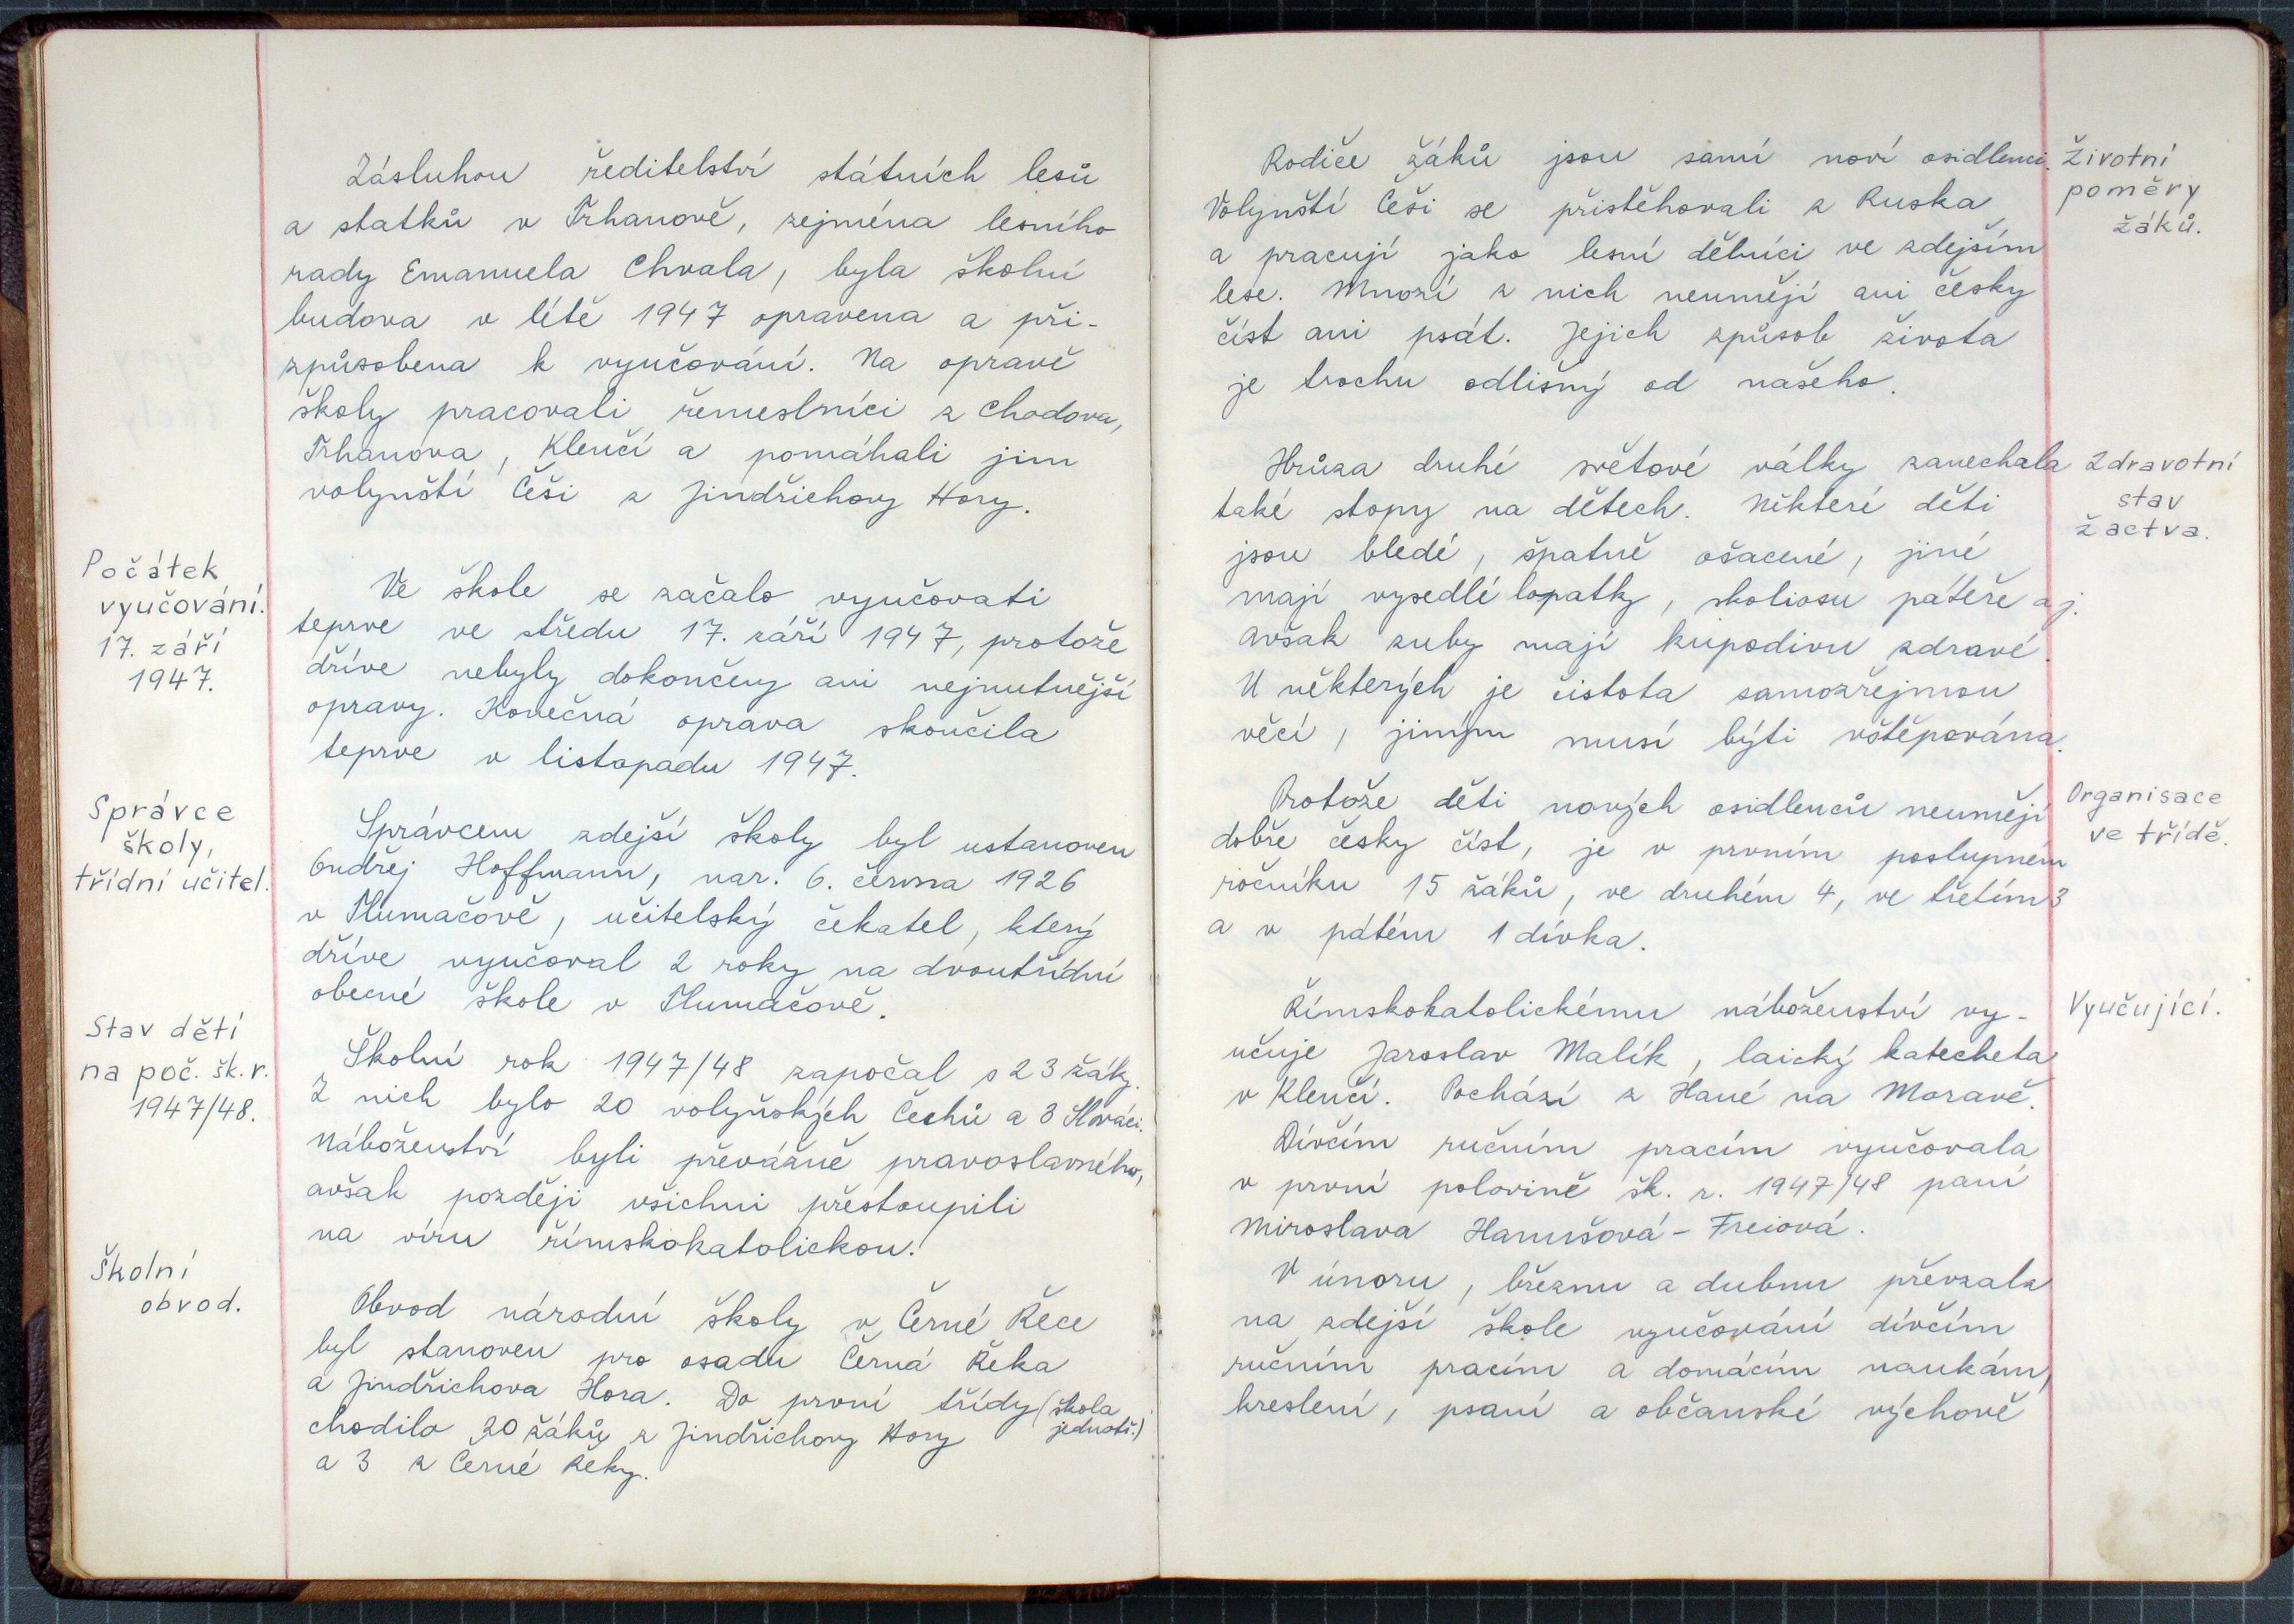 Zásluhou ředitelství státních lesů
a statků v Trhanově, zejména lesního
rady Emanuela Chvala, byla školní
budova v létě 1947 opravena a při-
způsobena k vyučování. Na opravě
školy pracovali řemeslníci z Chodova,
Trhanova, Klenčí a pomáhali jim
volynští Češi z Jindřichovy Hory.
Počátek
vyučování.
17. září
1947.
Ve škole se začalo vyučovati
teprve ve středu 17. září 1947, protože
dříve nebyly dokončeny ani nejnutnější
opravy. Konečná oprava skončila
teprve v listopadu 1947.
Správce
školy,
třídní učitel.
Správcem zdejší školy byl ustanoven
Ondřej Hoffmann, nar. 6. června 1926
v Tlumačově, učitelský čekatel, který
dříve vyučoval 2 roky na dvoutřídní
obecné škole v Tlumačově.
Stav dětí
na poč. šk. r.
1947/48.
Školní rok 1947/48 započal s 23 žáky.
Z nich bylo 20 volyňských Čechů a 3 Slováci.
Náboženství byli převážně pravoslavného,
avšak později všichni přestoupili
na víru římskokatolickou.
Školní
obvod.
Obvod národní školy v Černé Řece
byl stanoven pro osadu Černá Řeka
a Jindřichova Hora. Do první třídy (škola
jednotř.)
chodilo 20 žáků z Jindřichovy Hory
a 3 z Černé Řeky.
Rodiče žáků jsou samí noví osidlenci.
Volynští Češi se přistěhovali z Ruska
a pracují jako lesní dělníci ve zdejším
lese. Mnozí z nich neumějí ani česky
číst ani psát. Jejich způsob života
je trochu odlišný od našeho.
Životní
poměry
žáků.
Hrůza druhé světové války zanechala
také stopy na dětech. Někteří děti
jsou bledé, špatně ošacené, jiné
mají vysedlé lopatky, skoliosu páteře aj.
Avšak zuby mají kupodivu zdravé.
U některých je čistota samozřejmou
věcí, jiným musí býti vštěpována.
Zdravotní
stav
žactva.
Protože děti nových osidlenců neumějí
dobře česky číst, je v prvním postupném
ročníku 15 žáků, ve druhém 4, ve třetím 3
a v pátém 1 dívka.
Organisace
ve třídě.
Římskokatolickému náboženství vy-
učuje Jaroslav Malík, laický katecheta
v Klenčí. Pochází z Hané na Moravě.
Vyučující.
Dívčím ručním pracím vyučovala
v první polovině šk. r. 1947/48 paní
Miroslava Hanušová - Freiová.
V únoru, březnu a dubnu převzala
na zdejší škole vyučování dívčím
ručním pracím a domácím naukám,
kreslení, psaní a občanské výchově